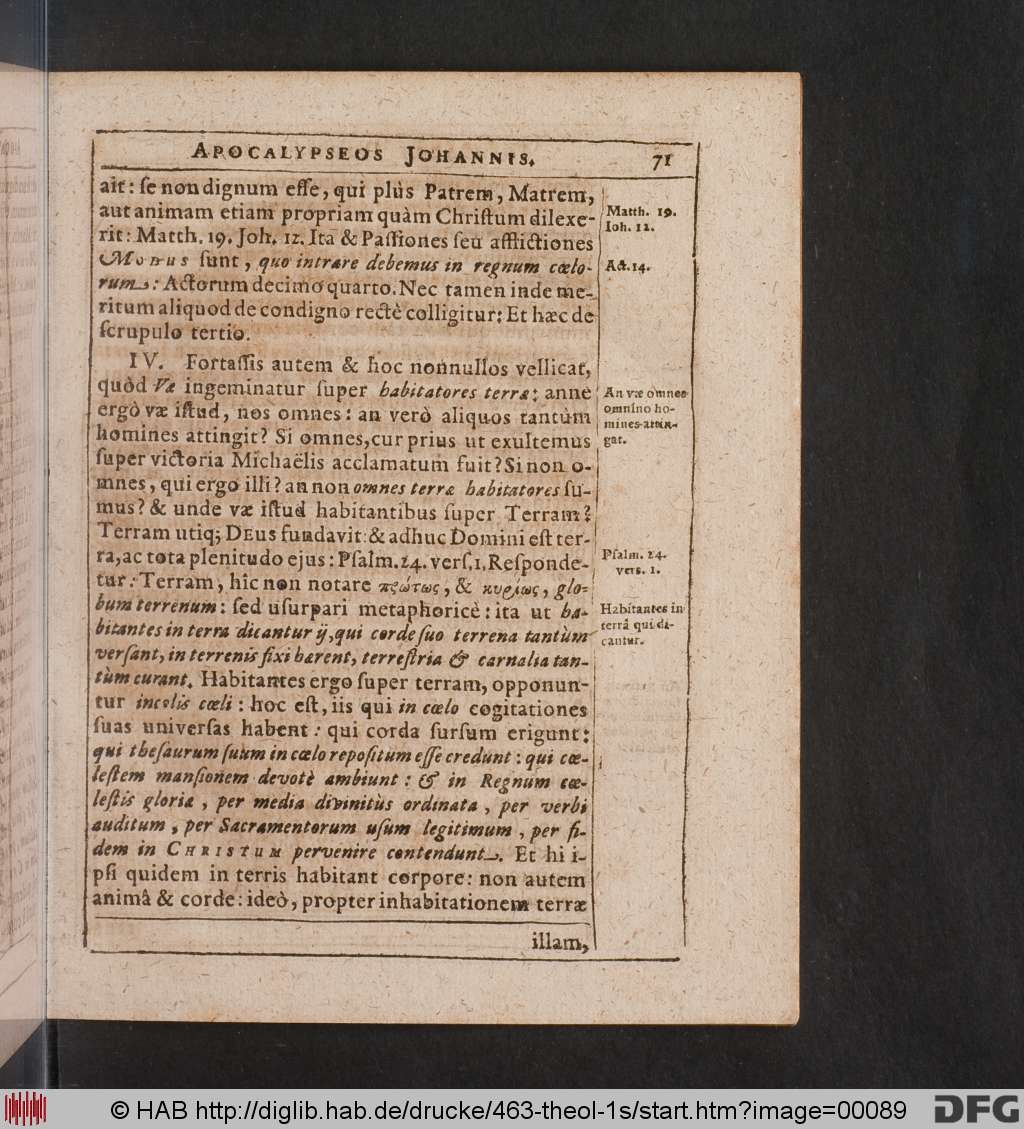 APOCALYPSEOS JOHANNIS. 71
ait: se non dignum esse, qui plùs Patrem, Matrem,
aut animam etiam propriam quàm Christum dilexe-
rit: Matth. 19. Joh. 12. Ita & Passiones seu afflictiones
Modus sunt, quo intrare debemus in regnum cœlo-
rum: Actorum decimo quarto. Nec tamen inde me-
ritum aliquod de condigno rectè colligitur: Et hæc de
scrupulo tertio.
Matth. 19.
Ioh. 12.
Act. 14.
IV. Fortassis autem & hoc nonnullos vellicat,
quòd Væ ingeminatur super habitatores terræ: anne
ergò væ istud, nos omnes: an verò aliquos tantùm
homines attingit? Si omnes, cur prius ut exultemus
super victoria Michaëlis acclamatum fuit? Si non o-
mnes, qui ergo illi? an non omnes terræ habitatores su-
mus? & unde væ istud habitantibus super Terram?
Terram utiq; DEus fundavit: & adhuc Domini est ter-
ra, ac tota plenitudo ejus: Psalm. 24. vers. 1. Responde-
tur: Terram, hîc non notare πρώτως, & κυρίως, glo-
bum terrenum: sed usurpari metaphoricè: ita ut ha-
bitantes in terra dicantur ij, qui corde suo terrena tantùm
versant, in terrenis fixi hærent, terrestria & carnalia tan-
tùm curant. Habitantes ergo super terram, opponun-
tur incolis cœli: hoc est, iis qui in cœlo cogitationes
suas universas habent: qui corda sursum erigunt:
qui thesaurum suum in cœlo repositum esse credunt: qui cœ-
lestem mansionem devotè ambiunt: & in Regnum cœ-
lestis gloriæ, per media divinitùs ordinata, per verbi
auditum, per Sacramentorum usum legitimum, per fi-
dem in CHRISTUM pervenire contendunt. Et hi i-
psi quidem in terris habitant corpore: non autem
animâ & corde: ideò, propter inhabitationem terræ
illam,
An væ omnes
omnino ho-
mines attin-
gat.
Psalm. 24.
vers. 1.
Habitantes in
terrâ qui di-
cantur.
© HAB http://diglib.hab.de/drucke/463-theol-1s/start.htm?image=00089
DFG